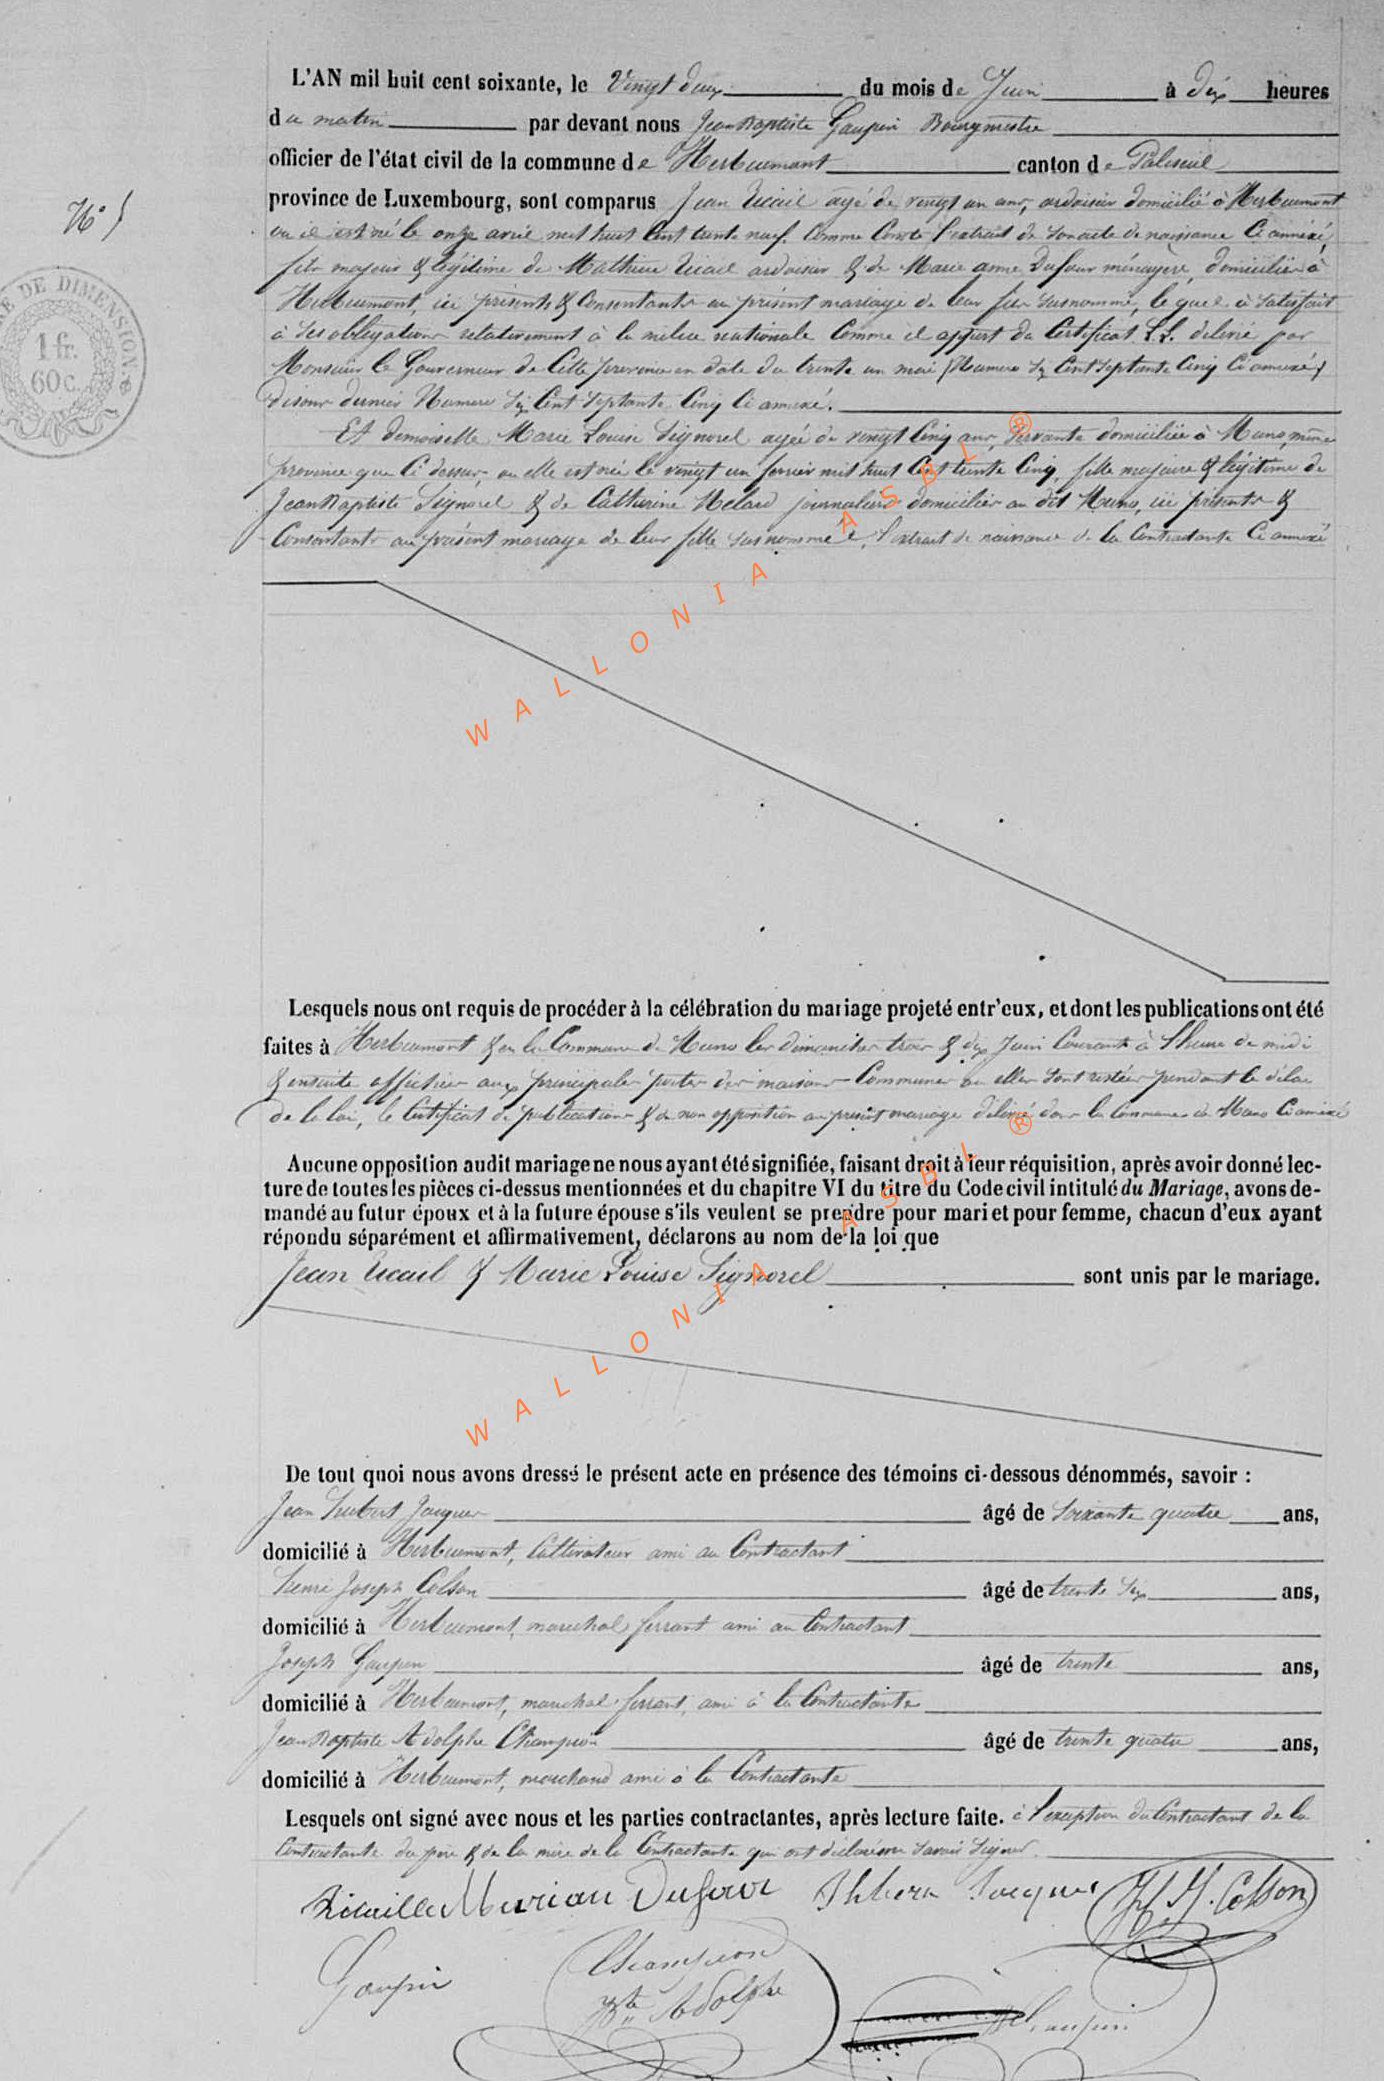 L'AN mil huit cent soixante, le Vingt deux du mois de Juin à dix heures
du matin par devant nous Jean Baptiste Gaupin Bourgmestre
officier de l'état civil de la commune de Herbeumont canton de Paliseul
N° 5
province de Luxembourg, sont comparus Jean Ricail agé de vingt un ans, ardoisier domicilié à Herbeumont
ou il est né le onze avril mil huit cent trente neuf. Comme Conste l'extrait de son acte de naissance Ci annexé,
fils majeur & légitime de Mathieu Ricail ardoisier & de Marie anne Dufour ménagère, domiciliés à
Herbeumont, ici présents & Consentants au présent mariage de leur fils susnommé, lequel à satisfait
à ses obligations relativement à la milice nationale Comme il appert du Certificat L.L. délivré par
Monsieur le Gouverneur de Cette province en date du trente un mai (Numéro six Cent septante Cinq Ci annexé)
disons dernier Numero six Cent septante Cinq Ci annexé.
Et demoiselle Marie Louise Signorel agée de vingt Cinq ans, servante domiciliée à Muno, même
province que Ci dessus, ou elle est née le vingt un fevrier mil huit Cent trente Cinq, fille majeure & légitime de
Jean Baptiste Signorel & de Catherine Melard journaliers domiciliés au dit Muno, ici présents &
Consentants au présent mariage de leur fille susnommée, l'extrait de naissance de la Contractante Ci annexé
E DE DIMENSION
1 fr.
60 c.
WALLONIA ASBL ®
Lesquels nous ont requis de procéder à la célébration du mariage projeté entr'eux, et dont les publications ont été
faites à Herbeumont & en la Commune de Muno les dimanches trois & dix Juin Courant à l'heure de midi
& ensuite affichées aux principales portes des maisons Communes ou elles sont restées pendant le délai
de la loi, le Certificat de publications & de non opposition au présent mariage délivré dans la Commune de Muno Ci annexé
Aucune opposition audit mariage ne nous ayant été signifiée, faisant droit à leur réquisition, après avoir donné lec-
ture de toutes les pièces ci-dessus mentionnées et du chapitre VI du titre du Code civil intitulé du Mariage, avons de-
mandé au futur époux et à la future épouse s'ils veulent se prendre pour mari et pour femme, chacun d'eux ayant
répondu séparément et affirmativement, déclarons au nom de la loi que
Jean Ricail & Marie Louise Signorel sont unis par le mariage.
WALLONIA ASBL ®
De tout quoi nous avons dressé le présent acte en présence des témoins ci-dessous dénommés, savoir :
Jean Hubert Jacques âgé de soixante quatre ans,
domicilié à Herbeumont, Cultivateur ami au Contractant
Henri Joseph Colson âgé de trente six ans,
domicilié à Herbeumont, marechal ferrant ami au Contractant
Joseph Gaupin âgé de trente ans,
domicilié à Herbeumont, marechal ferrant, ami à la Contractante
Jean Baptiste Adolphe Champion âgé de trente quatre ans,
domicilié à Herbeumont, marchand ami à la Contractante
Lesquels ont signé avec nous et les parties contractantes, après lecture faite. à l'exception du Contractant de la
Contractante du père & de la mère de la Contractante qui ont déclaré ne savoir signer.
Marian Dufour Jacques H. J. Colson
Gaupin Champion
Jbte Adolphe
Gaupin